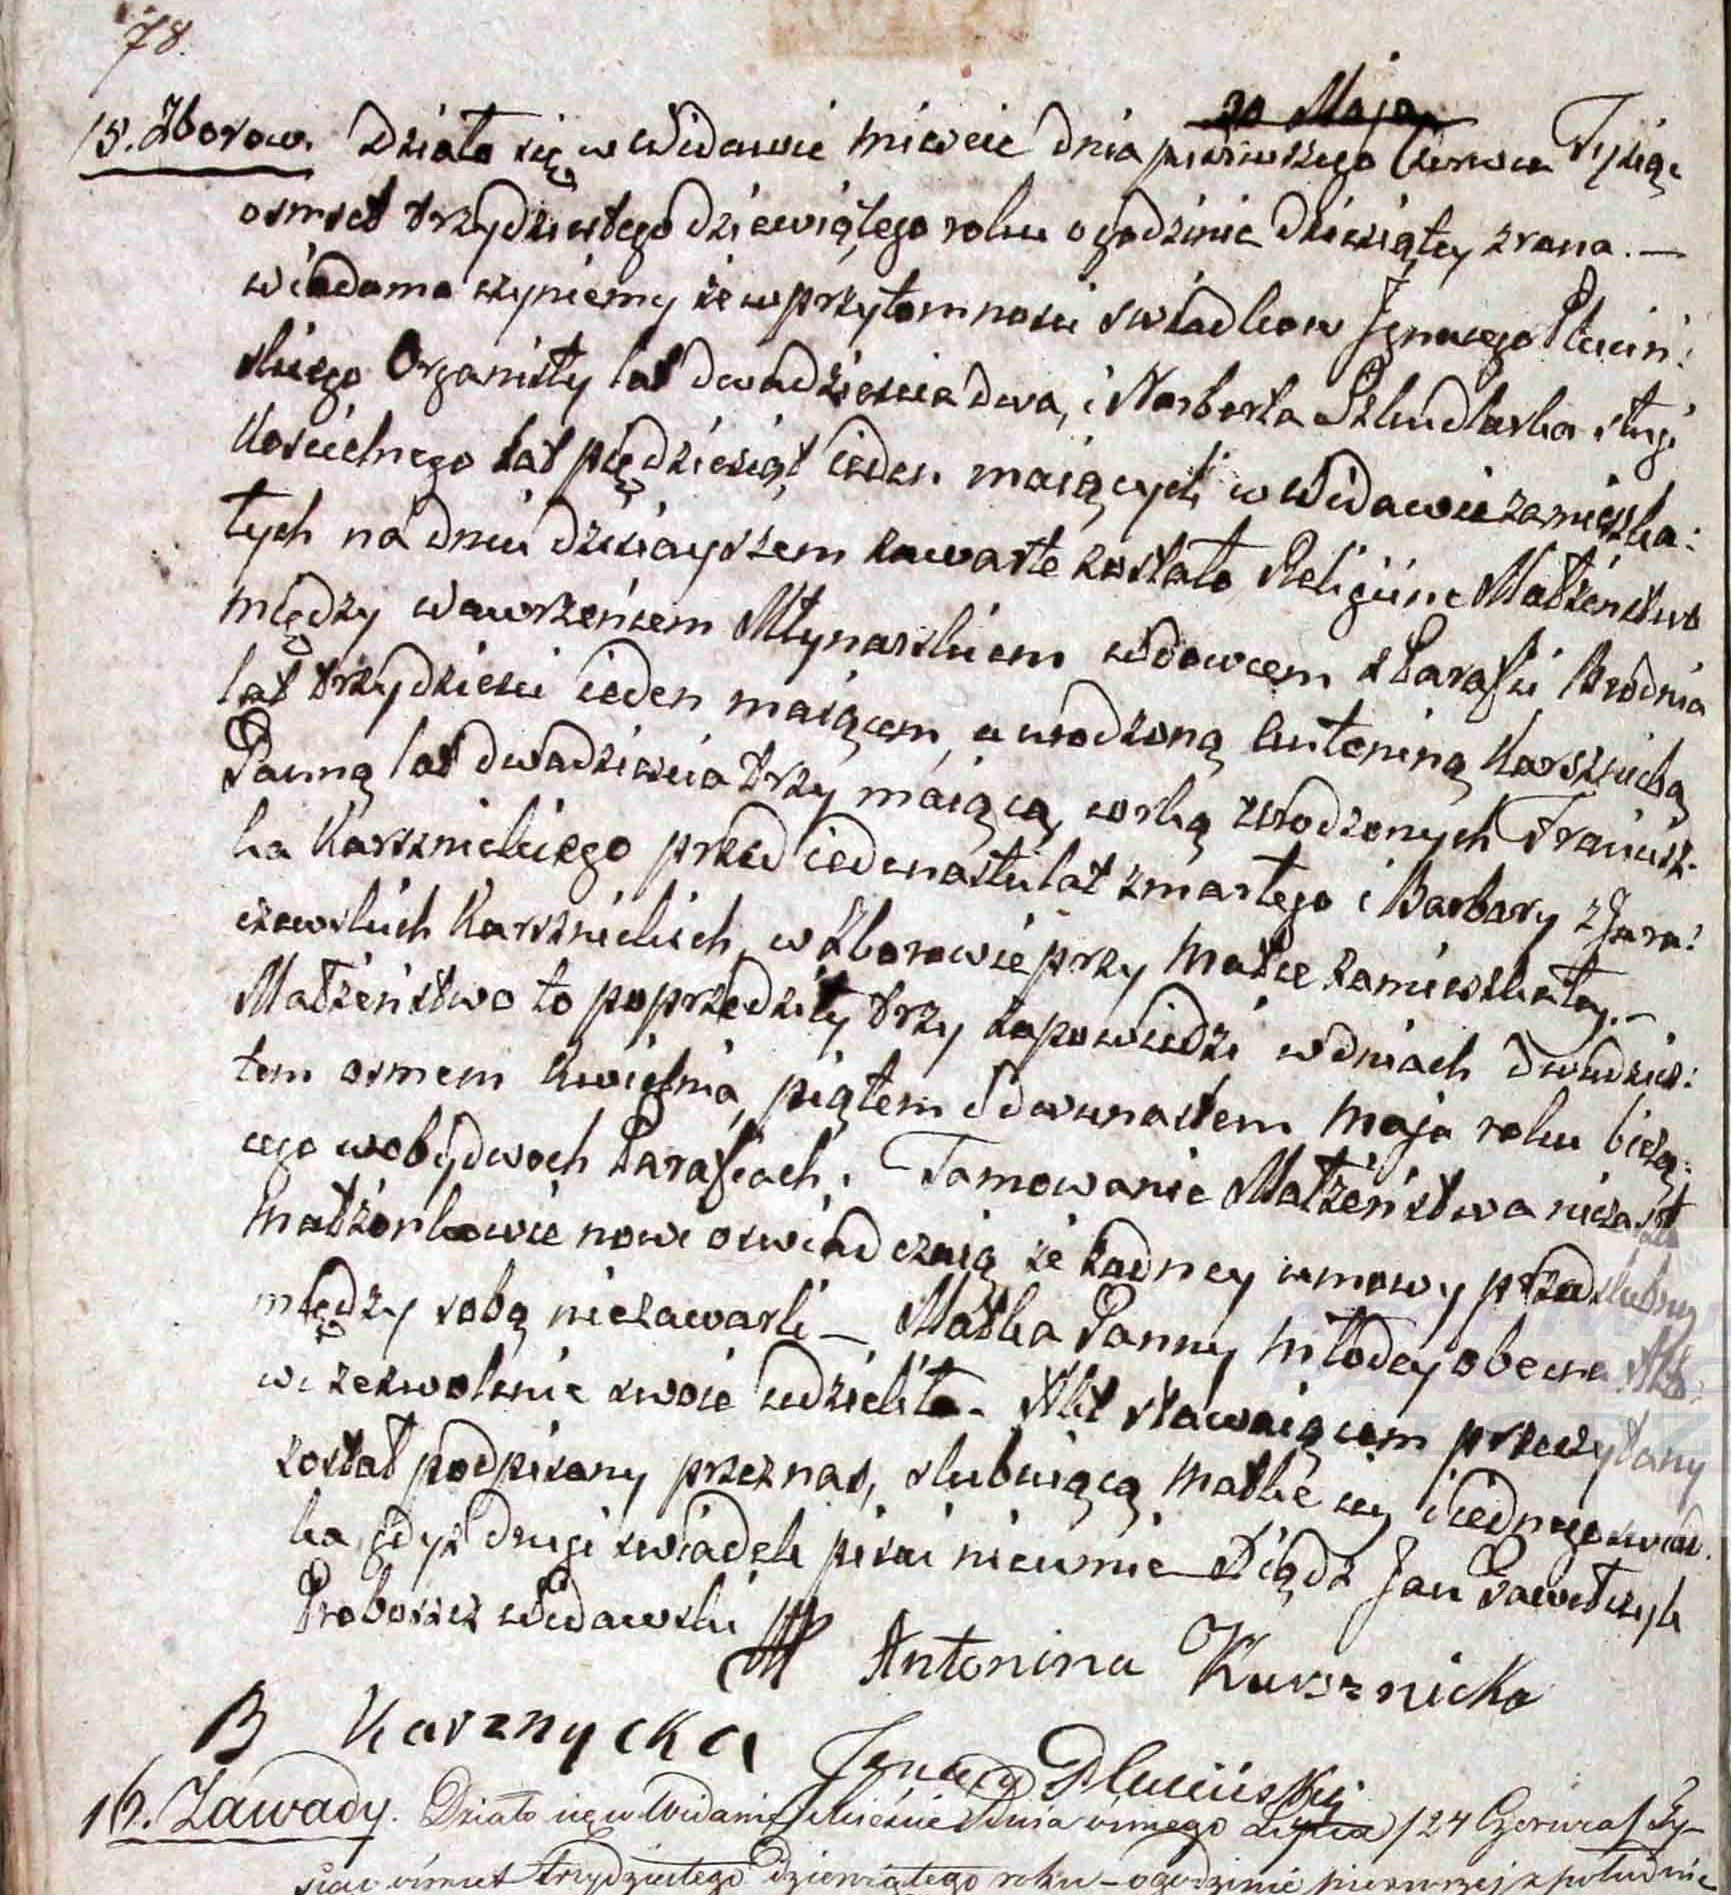 78.
20 Maja
15. Zborow. Działo się w Widawie mieście dnia pierwszego Czerwca Tysiąc
osmset trzydziestego dziewiątego roku o godzinie dziesiątey z rana. —
wiadomo czyniemy że w przytomności swiadkow Ignacego Plucin:
skiego Organisty lat dwadzieścia dwa, i Norberta Szkudlarka sługi
Koscielnego lat piędziesiąt ieden maiących w Widawie zamieszka:
łych na dniu dzisiayszem zawarte zostało Religiine Małżeństwo
między Wawrzeńcem Młynarskiem wdowcem z Parafii Brodnia
lat trzydzieści ieden maiącem, a urodzoną Antoniną Karsznicką
Panną lat dwadzieścia trzy maiącą, corką urodzonych Francisz-
ka Karsznickiego przed iedenastu lat zmarłego i Barbary z Jara:
czewskich Karsznickich, w Zborowie przy matce zamieszkałą. —
Małżeństwo to poprzedziły trzy zapowiedzi w dniach dwudzies:
tem osmem kwietnia, piątem i dwunastem maja roku bieżą:
cego w obydwoch Parafiach. Tamowanie Małżeństwa niezaszło
małżonkowie nowi oswiadczaią że żadney umowy przedslubney
między sobą niezawarli — Matka Panny młodey obecna Akto:
wi zezwolenie swoie udzieliła. Akt stawaiącem przeczytany
został podpisany przez nas, slubuiącą matkę iey i iednego swiad.
ka, gdyż drugi swiadek pisać nieumie X Jan Pawełczyk
Proboszcz Widawski
Antonina Karsznicka
B Karznycka
Ignacy Pluciński
16. Zawady. Działo się w Widawie Mieście Dnia osmego Lipca /24 Czerwca/ Ty-
siąc osmset trzydziestego dziewiątego roku — o godzinie pierwszej z południa